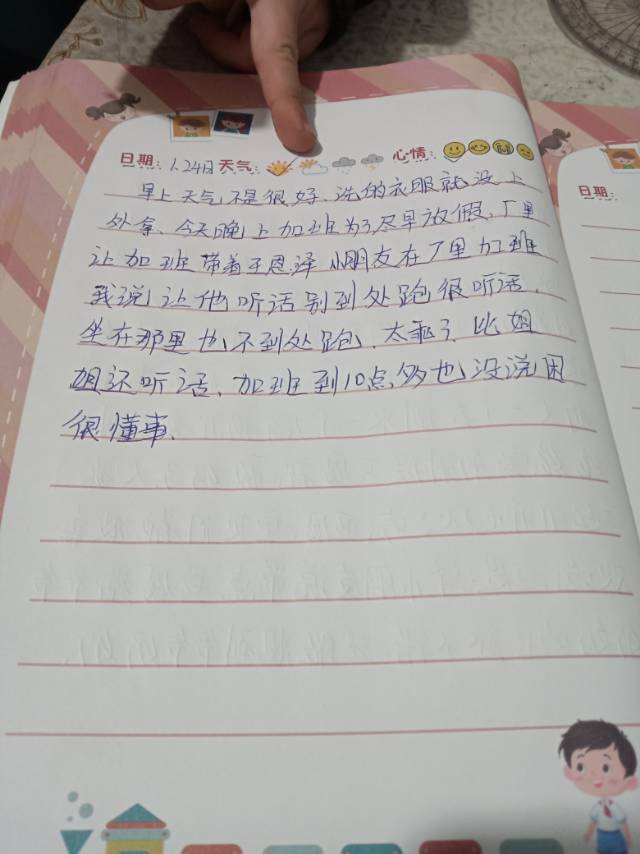 日期: 1.24日 天气: 心情:
早上天气不是很好、洗的衣服就没上
外拿、今天晚上加班为了尽早放假、厂里
让加班带着于恩泽小朋友在厂里加班
我说让他听话别到处跑很听话、
坐在那里也不到处跑、太乖了、比姐
姐还听话、加班到10点多也没说困
很懂事、
日期: